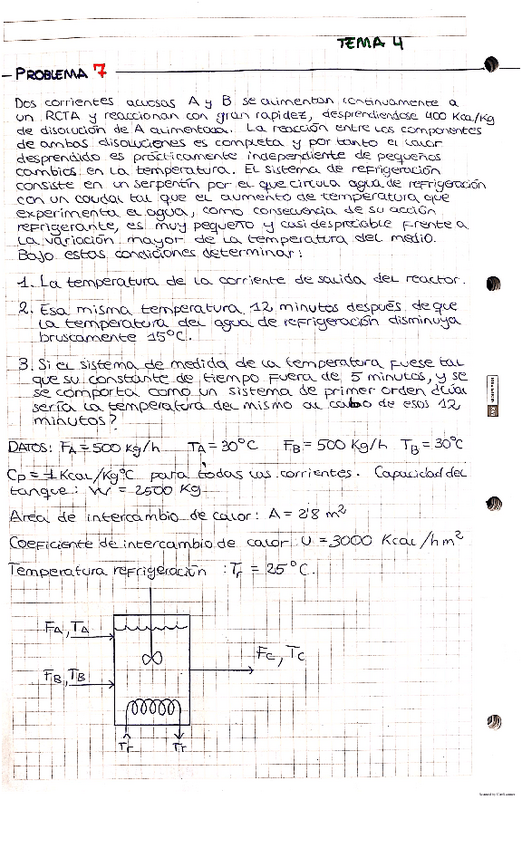 TEMA 4
PROBLEMA 7
Dos corrientes acuosas A y B se alimentan continuamente a
un RCTA y reaccionan con gran rapidez, desprendiendose 400 Kcal/Kg
de disolución de A alimentada. La reacción entre los componentes
de ambas disoluciones es completa y por tanto el calor
desprendido es prácticamente independiente de pequeños
cambios en la temperatura. El sistema de refrigeración
consiste en un serpentín por el que circula agua de refrigeración
con un caudal tal que el aumento de temperatura que
experimenta el agua, como consecuencia de su acción
refrigerante, es muy pequeño y casi despreciable frente a
la variación mayor de la temperatura del medio.
Bajo estas condiciones determinar:
1. La temperatura de la corriente de salida del reactor.
2. Esa misma temperatura 12 minutos después de que
la temperatura del agua de refrigeración disminuya
bruscamente 15°C.
3. Si el sistema de medida de la temperatura fuese tal
que su constante de tiempo fuera de 5 minutos, y se
se comporta como un sistema de primer orden ¿cual
sería la temperatura del mismo al cabo de esos 12
minutos?
DATOS: FA = 500 kg/h TA = 30°C FB = 500 Kg/h TB = 30°C
Cp = 1 Kcal/Kg°C para todas las corrientes. Capacidad del
tanque: W = 2500 Kg
Area de intercambio de calor: A = 2'8 m²
Coeficiente de intercambio de calor: U = 3000 Kcal/hm²
Temperatura refrigeración : Tr = 25°C.
FA, TA
FC, TC
FB, TB
Tr Tr